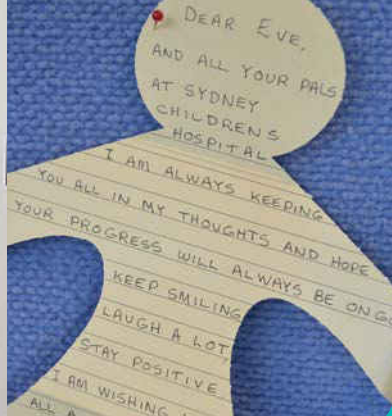 DEAR EVE,
AND ALL YOUR PALS
AT SYDNEY
CHILDRENS
HOSPITAL
I AM ALWAYS KEEPING
YOU ALL IN MY THOUGHTS AND HOPE
YOUR PROGRESS WILL ALWAYS BE
KEEP SMILING
LAUGH A LOT
STAY POSITIVE
I AM WISHING
ALL